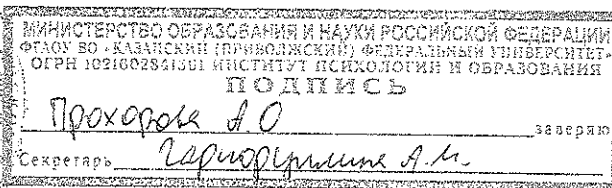 МИНИСТЕРСТВО ОБРАЗОВАНИЯ И НАУКИ РОССИЙСКОЙ ФЕДЕРАЦИИ
ФГАОУ ВО «КАЗАНСКИЙ (ПРИВОЛЖСКИЙ) ФЕДЕРАЛЬНЫЙ УНИВЕРСИТЕТ»
ОГРН 1021602841391 ИНСТИТУТ ПСИХОЛОГИИ И ОБРАЗОВАНИЯ
ПОДПИСЬ
Прохорова А.О заверяю
Секретарь А.М.